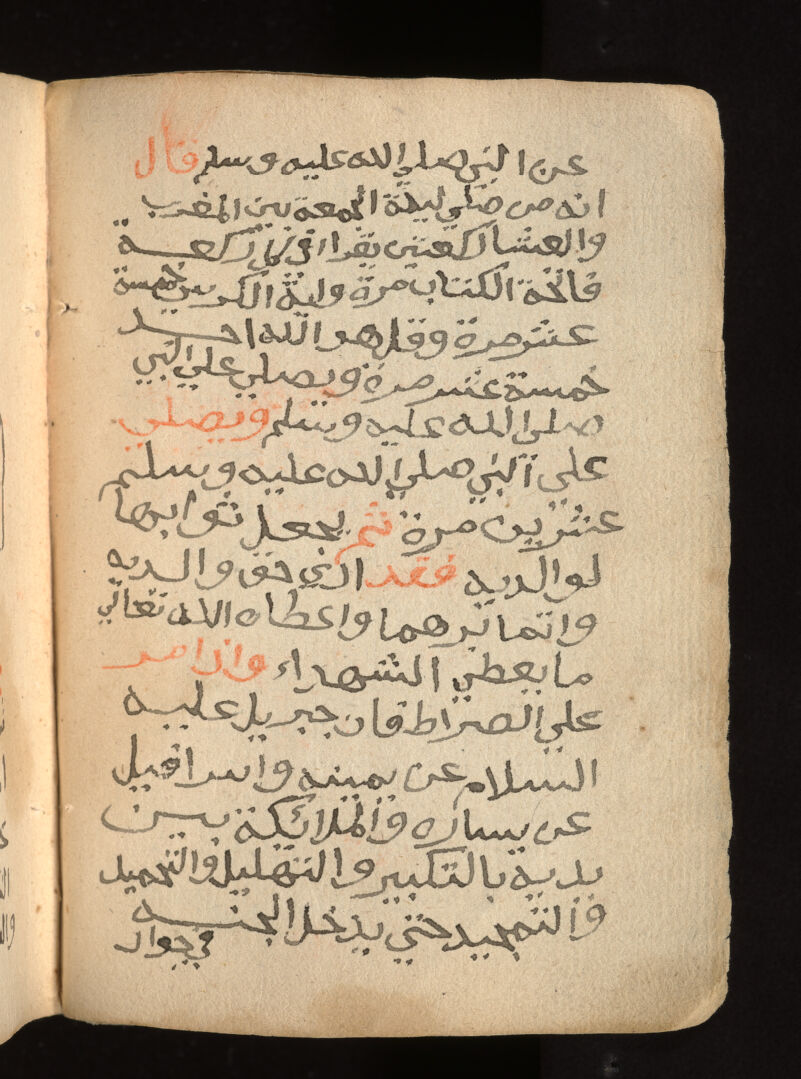 عن النبي صلي الله عليه وسلم قال
انه من صلي ليلة الجمعة بين المغرب
والعشا ركعتين يقرا في كل ركعة
فاتحة الكتاب مرة واية الكرسي خمسة
عشر مرة وقل هو الله احد
خمسة عشر مرة ويصلي علي النبي
صلي الله عليه وسلم ويصلي
علي النبي صلي الله عليه وسلم
عشرين مرة ثم يجعل ثوابها
لوالديه فقد ادي حق والديه
واتما برهما واعطاه الله تعالي
ما يعطي الشهداء واذا مر
علي الصراط فان جبريل عليه
السلام عن يمينه واسرافيل
عن يساره والملائكة بين
يديه بالتكبير والتهليل والتحميد
والتمجيد حتي يدخل الجنه
في جوار